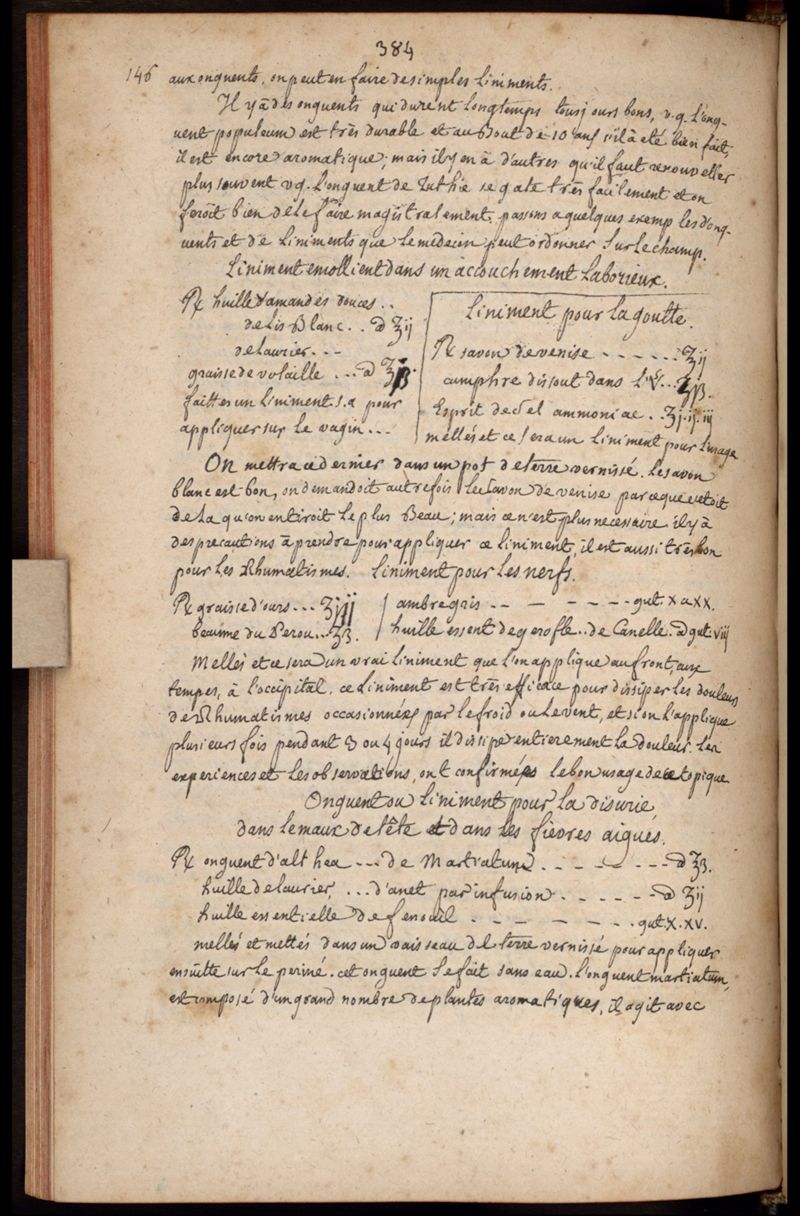 384
146 aux onguents, on peut en faire de simples liniments.
Il y à des onguents qui durent longtemps tousjours bons, v.g. l'ong-
uent populeum est très durable et au bout de 10 ans s'il à eté bien fait,
il est encore aromatique; mais il y en à d'autres qu'il faut renouveller
plus souvent v.g. l'onguent de Tuthie se gate très facilement et on
feroit bien de le faire magistralement, passons a quelques exemples d'ong-
uents et de liniments que le medecin peut ordonner sur le champ.
Liniment emollient dans un accouchement laborieux.
℞ huille d'amandes douces . .
de Lis Blanc . . ā ʒij
de laurier . - -
graisse de volaille . . . ā
faittes un liniment s.a pour
appliquer sur le vagin . . .
Liniment pour la goutte.
℞ savon de venise - - - - . . . ʒij
camphre dissout dans l'
Esprit de sel ammoniac . . ʒj. ij. iij
mellés et ce sera un liniment pour l'usage
On mettra ce dernier dans un pot de terre vernissé. le savon
blanc est bon, on demandoit autrefois le savon de venise parceque c'etoit
de la qu'on en tiroit le plus Beau; mais ce n'est plus necessaire. il y à
des precautions à prendre pour appliquer ce liniment, il est aussi très bon
pour les Rhumatismes. liniment pour les nerfs.
℞ graisse d'ours . . . ʒiij
beaume du Perou . . ʒß.
ambre gris - - — — - - - - gut x a xx.
huille essent de gerofle . . de Canelle . ā gut. vij
Mellés et ce sera un vrai liniment que l'on applique au front, aux
tempes, à l'occipital, ce liniment est très efficace pour dissiper les douleurs
de Rhumatismes occasionnées par le froid ou le vent, et si on l'applique
plusieurs fois pendant 3 ou 4 jours il dissipe entierement la douleur. les
experiences et les observations, ont confirmées le bon usage de ce topique
Onguent ou liniment pour la disurie,
dans le maux de tête et dans les fievres aigues.
℞ onguent d'althea - - - de Martiatum . - . - — - - - ā ʒß.
huille de laurier, . . . d'anet par infusion . - - - - - ā ʒij
huille essentielle de fenouil - - — — - - . gut. x. xv.
mellés et mettés dans un vaisseau de terre vernissé pour appliquer
ensüitte sur le periné. cet onguent se fait sans eau. l'onguent martiatum,
est composé d'un grand nombre de plantes aromatiques, il agit avec